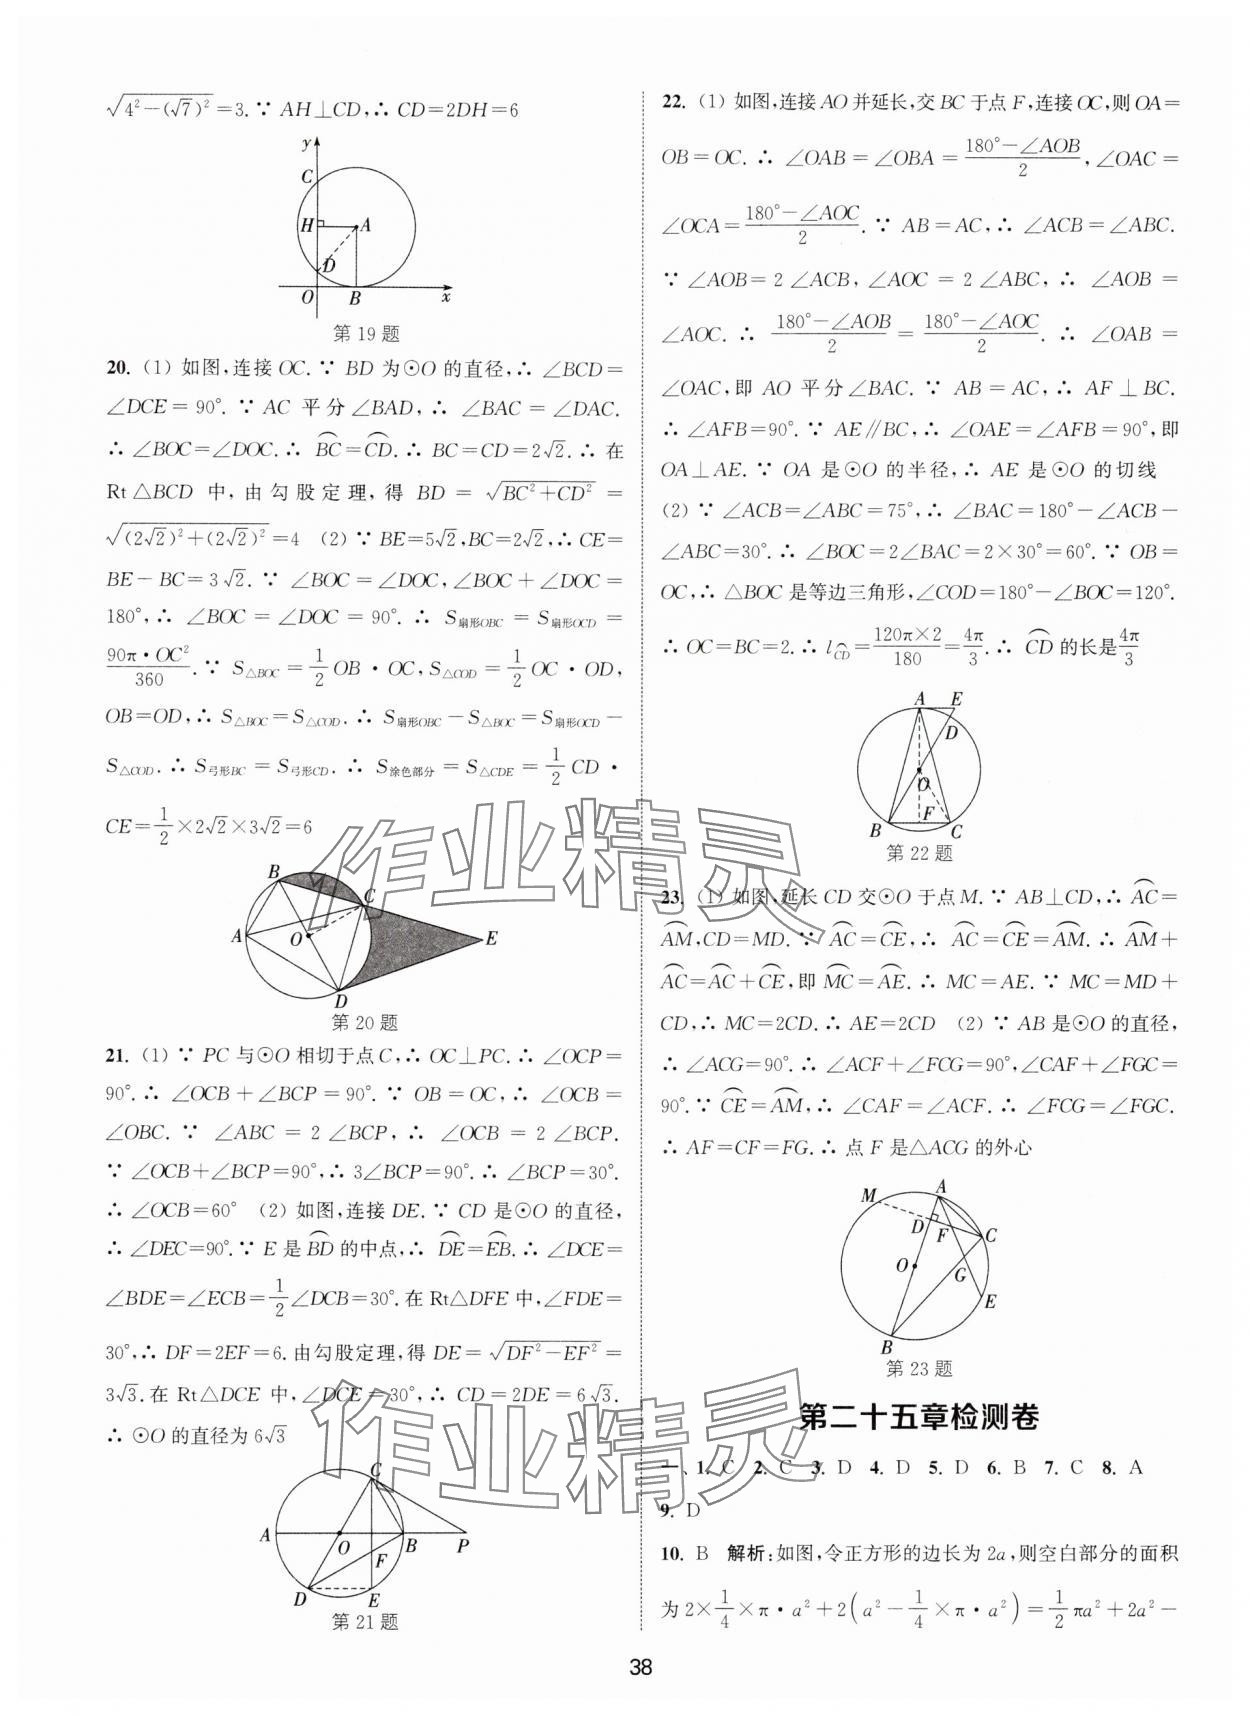 √(4²−(√7)²)=3.∵ AH⊥CD,∴ CD=2DH=6
y
C
H
A
D
O
B
x
第19题
20. (1) 如图,连接OC.∵ BD 为⊙O 的直径,∴ ∠BCD=
∠DCE=90°.∵ AC 平分∠BAD,∴ ∠BAC=∠DAC.
∴ ∠BOC=∠DOC.∴ BC⌒=CD⌒.∴ BC=CD=2√2.∴ 在
Rt△BCD 中,由勾股定理,得 BD=√(BC²+CD²)=
√((2√2)²+(2√2)²)=4 (2) ∵ BE=5√2,BC=2√2,∴ CE=
BE−BC=3√2.∵ ∠BOC=∠DOC,∠BOC+∠DOC=
180°,∴ ∠BOC=∠DOC=90°.∴ S扇形OBC=S扇形OCD=
90π·OC²/360.∵ S△BOC=1/2 OB·OC,S△COD=1/2 OC·OD,
OB=OD,∴ S△BOC=S△COD.∴ S扇形OBC−S△BOC=S扇形OCD−
S△COD.∴ S弓形BC=S弓形CD.∴ S涂色部分=S△CDE=1/2 CD·
CE=1/2×2√2×3√2=6
B
C
A
O
E
D
第20题
21. (1) ∵ PC 与⊙O 相切于点C,∴ OC⊥PC.∴ ∠OCP=
90°.∴ ∠OCB+∠BCP=90°.∵ OB=OC,∴ ∠OCB=
∠OBC.∵ ∠ABC=2∠BCP,∴ ∠OCB=2∠BCP.
∵ ∠OCB+∠BCP=90°,∴ 3∠BCP=90°.∴ ∠BCP=30°.
∴ ∠OCB=60° (2) 如图,连接DE.∵ CD 是⊙O 的直径,
∴ ∠DEC=90°.∵ E 是BD⌒的中点,∴ DE⌒=EB⌒.∴ ∠DCE=
∠BDE=∠ECB=1/2∠DCB=30°.在Rt△DFE 中,∠FDE=
30°,∴ DF=2EF=6.由勾股定理,得 DE=√(DF²−EF²)=
3√3.在 Rt△DCE 中,∠DCE=30°,∴ CD=2DE=6√3.
∴ ⊙O 的直径为6√3
C
A
O
F
B
P
D
E
第21题
22. (1) 如图,连接AO并延长,交BC于点F,连接OC,则OA=
OB=OC.∴ ∠OAB=∠OBA=(180°−∠AOB)/2,∠OAC=
∠OCA=(180°−∠AOC)/2.∵ AB=AC,∴ ∠ACB=∠ABC.
∵ ∠AOB=2∠ACB,∠AOC=2∠ABC,∴ ∠AOB=
∠AOC.∴ (180°−∠AOB)/2=(180°−∠AOC)/2.∴ ∠OAB=
∠OAC,即 AO 平分∠BAC.∵ AB=AC,∴ AF⊥BC.
∴ ∠AFB=90°.∵ AE∥BC,∴ ∠OAE=∠AFB=90°,即
OA⊥AE.∵ OA 是⊙O 的半径,∴ AE 是⊙O 的切线
(2) ∵ ∠ACB=∠ABC=75°,∴ ∠BAC=180°−∠ACB−
∠ABC=30°.∴ ∠BOC=2∠BAC=2×30°=60°.∵ OB=
OC,∴ △BOC 是等边三角形,∠COD=180°−∠BOC=120°.
∴ OC=BC=2.∴ l CD⌒=120π×2/180=4π/3.∴ CD⌒的长是4π/3
A
E
D
O
B
F
C
第22题
23. (1) 如图,延长CD 交⊙O 于点M.∵ AB⊥CD,∴ AC⌒=
AM⌒,CD=MD.∵ AC⌒=CE⌒,∴ AC⌒=CE⌒=AM⌒.∴ AM⌒+
AC⌒=AC⌒+CE⌒,即MC⌒=AE⌒.∴ MC=AE.∵ MC=MD+
CD,∴ MC=2CD.∴ AE=2CD (2) ∵ AB 是⊙O 的直径,
∴ ∠ACG=90°.∴ ∠ACF+∠FCG=90°,∠CAF+∠FGC=
90°.∵ CE⌒=AM⌒,∴ ∠CAF=∠ACF.∴ ∠FCG=∠FGC.
∴ AF=CF=FG.∴ 点 F 是△ACG 的外心
A
M
D
F
C
O
G
E
B
第23题
第二十五章检测卷
一、1. C 2. C 3. D 4. D 5. D 6. B 7. C 8. A
9. D
10. B 解析:如图,令正方形的边长为2a,则空白部分的面积
为2×1/4×π·a²+2(a²−1/4×π·a²)=1/2πa²+2a²−
作业精灵
作业精灵
38